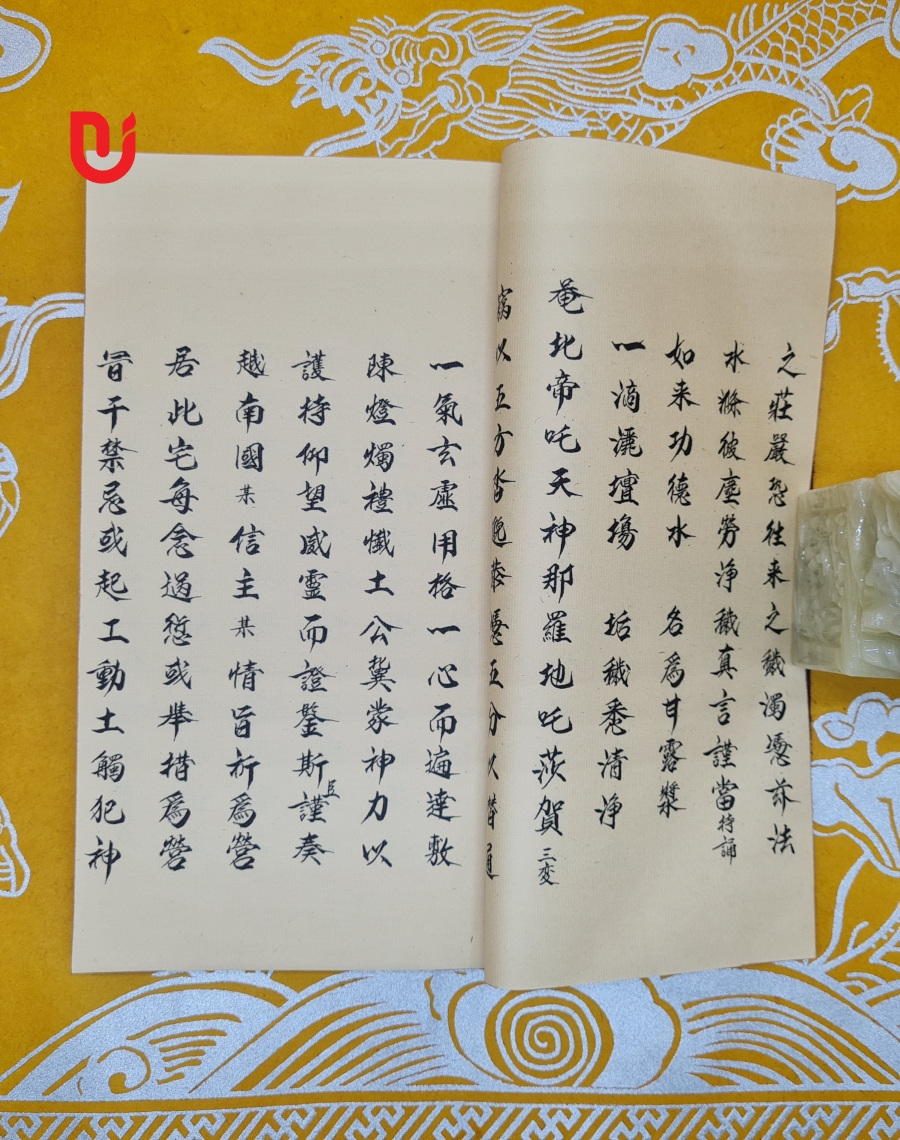 之莊嚴恐往来之穢濁憑茲法
水滌彼塵勞淨穢真言謹當持誦
如来功德水 名爲甘露漿
一滴灑壇場 垢穢悉清淨
菴北帝吒天神那羅地吒莎賀三変
窃以五方 憑五分以 通
一氣玄虛用格一心而遍達敷
陳燈燭禮懺土公冀蒙神力以
護持仰望威靈而證鑒斯臣謹奏
越南國某信主某情旨祈爲營
居此宅每念過愆或舉措爲營
冒干禁忌或起工動土觸犯神